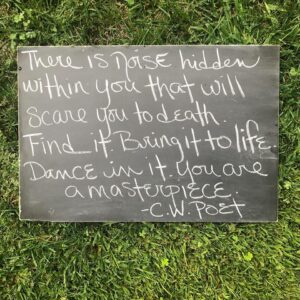 There is noise hidden
within you that will
scare you to death.
Find it. Bring it to life.
Dance in it. You are
a masterpiece.
-C.W. Poet